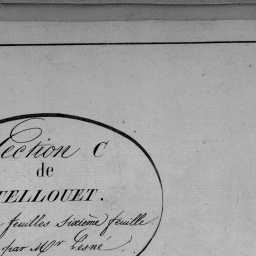 Section C
de
VELLOUET.
feuilles sixième feuille.
par Mr Lesné